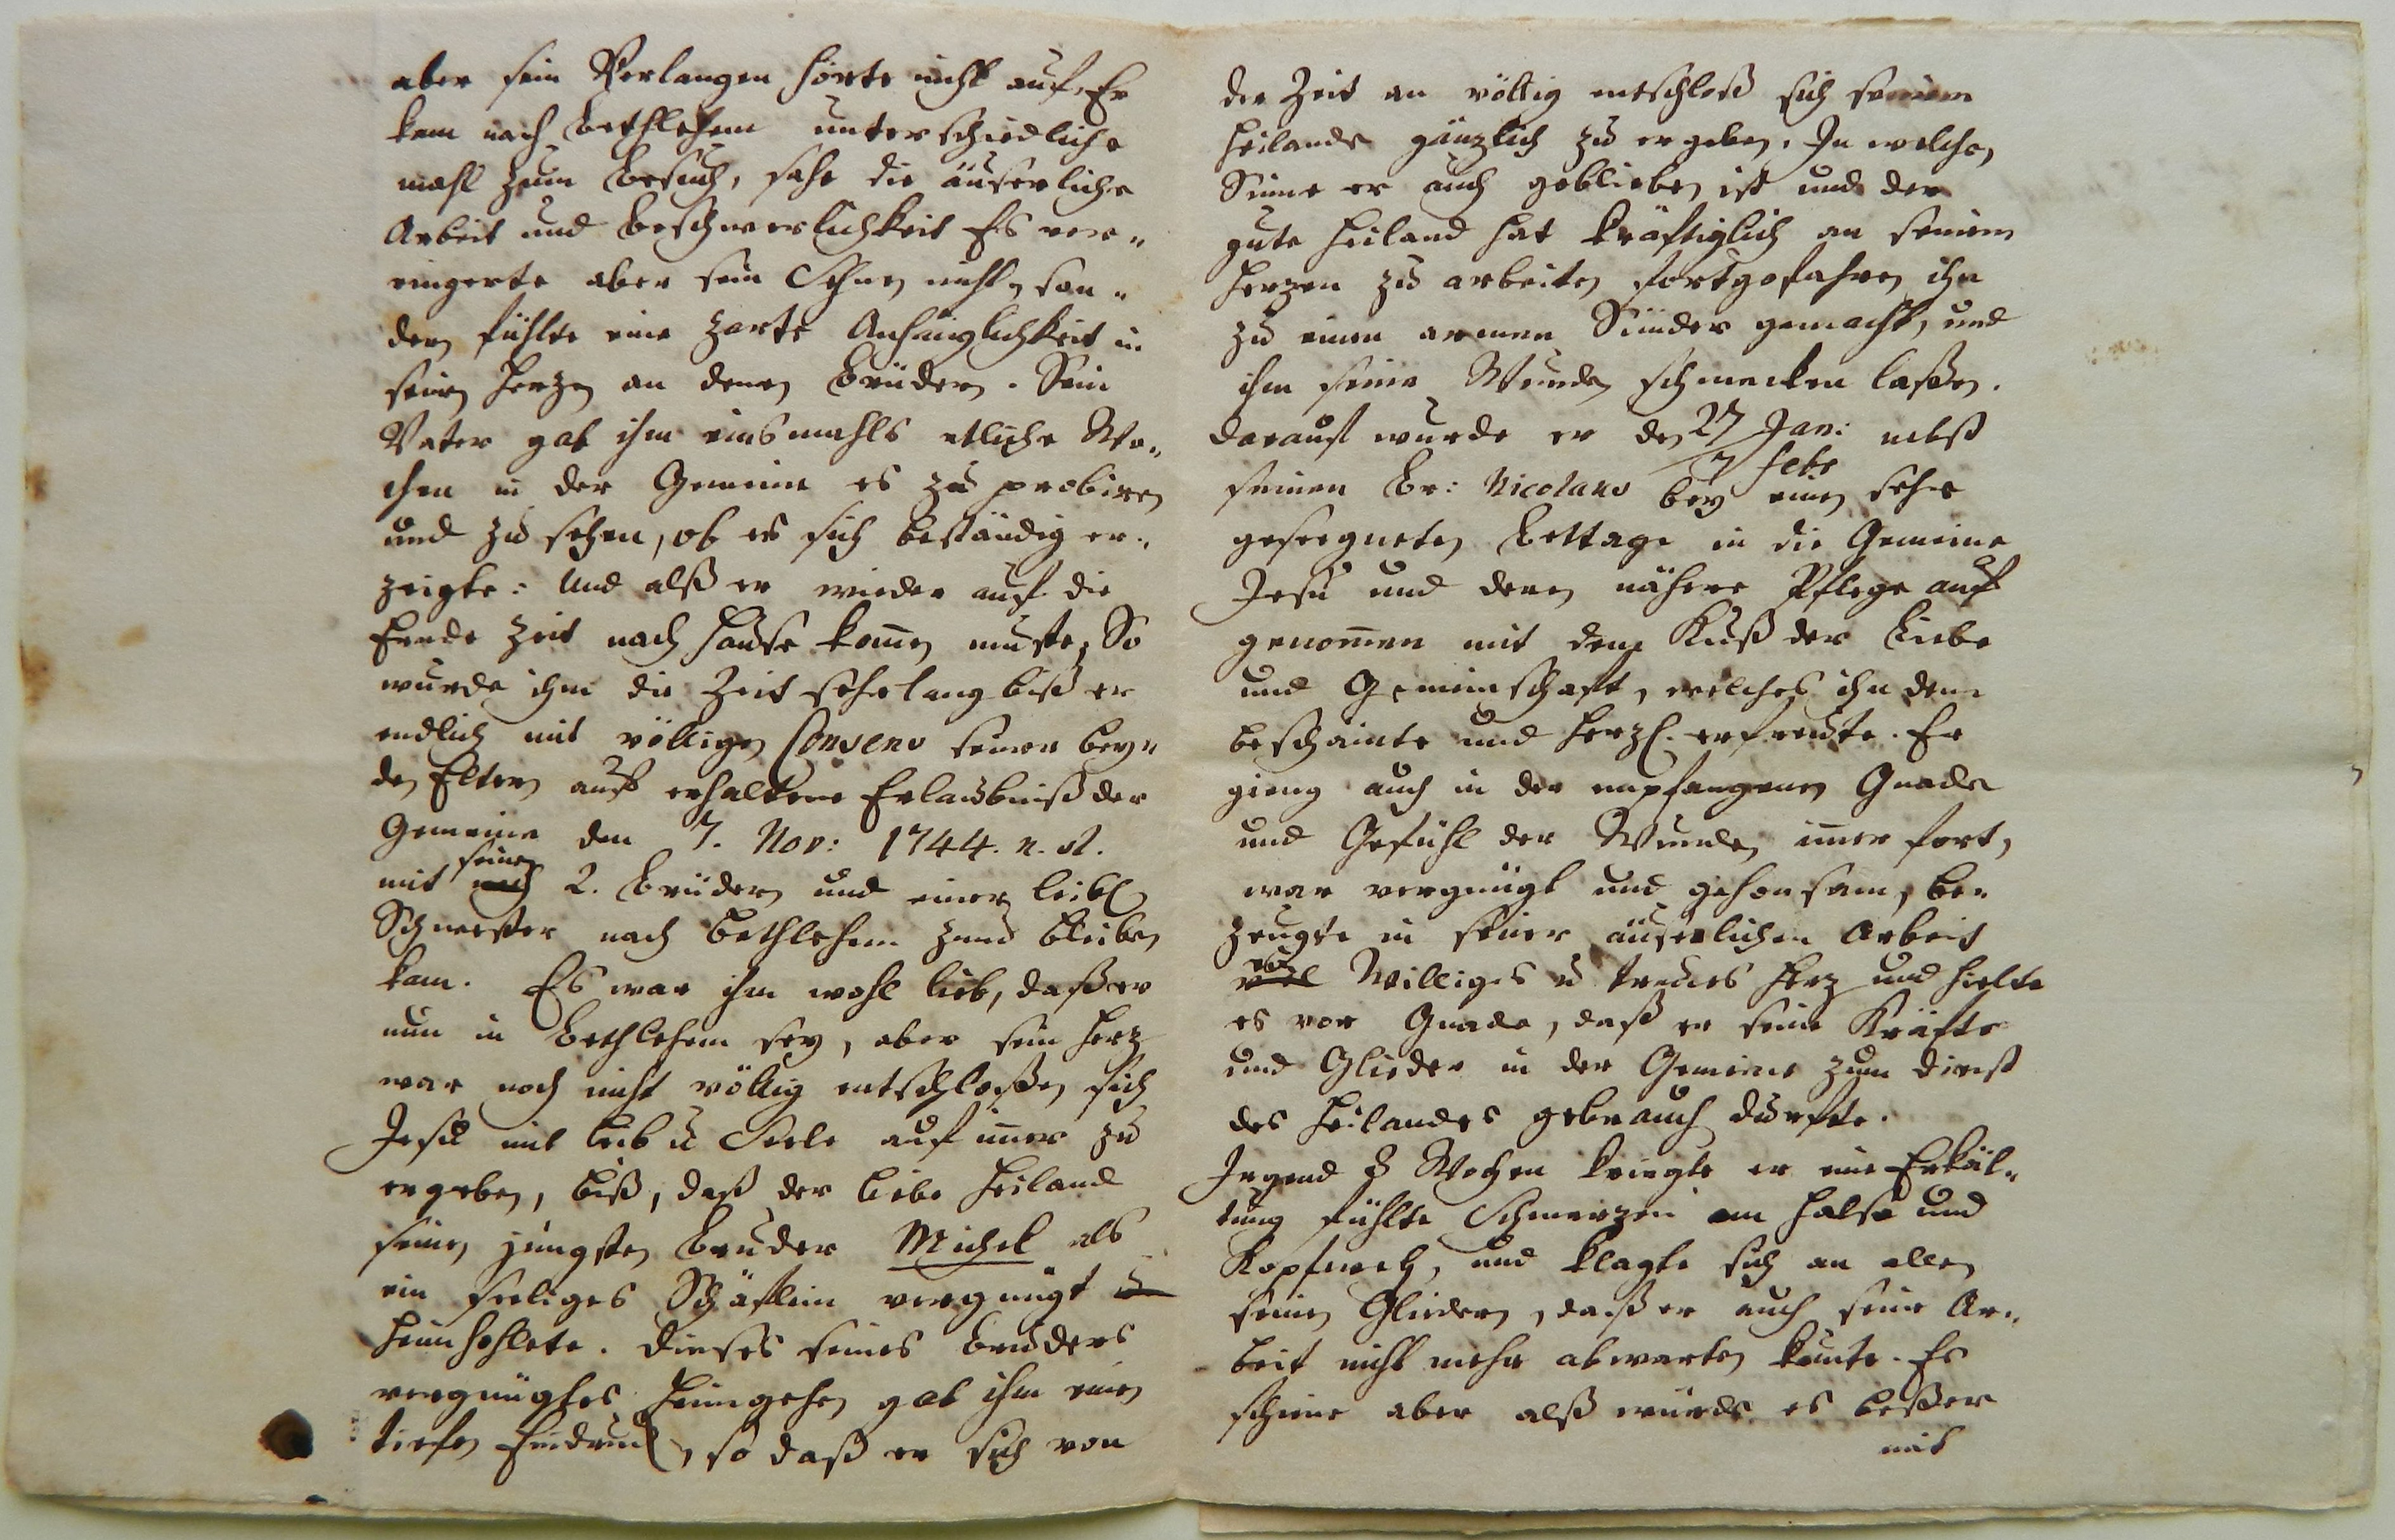 aber sein Verlangen hörte nicht auf, Er
kam nach Bethlehem unterschiedliche
mahl zum Besuch, sahe die äuserliche
Arbeit und Beschwerlichkeit Es ver„
ringerte aber sein Sehnen nicht, son„
dern fühlte eine zarte Anhänglichkeit in
seinen Herzen an denen Brüdern. Sein
Vater gab ihm einsmahls etliche Wo„
chen in der Gemeine es zu probiren
und zu sehen, ob er sich beständig er„
zeigte: Und alß er wieder auf die
Ernde Zeit nach Hause kom̄en muste, So
wurde ihm die Zeit sehr lang biß er
endlich mit völligen Consens seiner bey„
den Eltern auf erhaltene Erlaubniß der
Gemeine den 7. Nov: 1744. n. st.
mit noch seinen 2. Brüdern und einer leibl
Schwester nach Bethlehem zum bleiben
kam. Es war ihm wohl lieb, daß er
nun in Bethlehem sey, aber sein Herz
war noch nicht völlig entschloßen sich
Jesu mit Leib u Seele auf im̄er zu
ergeben, biß, daß der liebe Heiland
seinen jüngsten Bruder Michel als
ein seeliges Schäflein vergnügt
heimhohlete. Dieses seines Bruders
vergnügtes Heimgehen gab ihm einen
tiefen Eindruck, so daß er sich von
der Zeit an völlig entschloß sich seinem
Heilande gänzlich zu ergeben. In welchen
Sinne er auch geblieben ist und der
gute Heiland hat kräftiglich an seinem
Herzen zu arbeiten fortgefahren ihn
zu einen armen Sünder gemacht, und
ihm seine Wunden schmecken laßen.
Darauf wurde er den 27 Jan: nebst
7 Febr
seinen Br: Nicolaus bey einen sehr
geseegneten Bettage in die Gemeine
Jesu und deren nähere Pflege auf
genom̄en mit dem Kuß der Liebe
und Gemeinschaft, welches ihn denn
beschämte und herzl. erfreute. Er
gieng auch in der empfangenen Gnade
und Gefühl der Wunden im̄er fort,
war vergnügt und gehorsam, be„
zeugte in seiner äuserlichen Arbeit
viel ein Williges u treues Herz und hielte
es vor Gnade, daß er seine Kräfte
und Glieder in der Gemeine zum Dienst
des Heilandes gebrauch durfte.
Irgend 3 Wochen kriegte er eine Erkäl„
tung fühlte Schmerzen am Halse und
Kopfweh, und klagte sich an allen
seinen Gliedern, daß er auch seine Ar„
beit nicht mehr abwarten konte. Es
schiene aber alß würde es beßer
mit